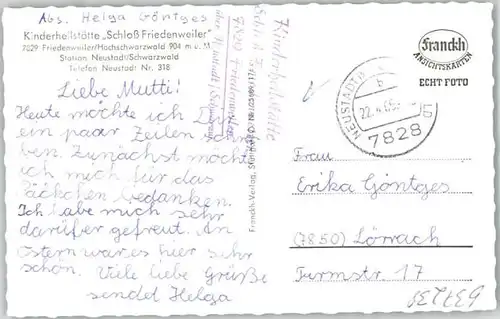 Abs. Helga Göntges
Kinderheilstätte „Schloß Friedenweiler"
7829 Friedenweiler/Hochschwarzwald 904 m ü. M.
Station Neustadt/Schwarzwald
Telefon Neustadt Nr. 318
Liebe Mutti!
Heute möchte ich Dir
ein paar Zeilen schrei
ben. Zunächst möchte
ich mich für das
Päckchen bedanken.
Ich habe mich sehr
darüber gefreut. An
Ostern war es hier sehr
schön. Viele liebe Grüße
sendet Helga
Franckh-Verlag, Stuttgart
Kinderheilstätte
Franckh
ANSICHTSKARTEN
ECHT FOTO
NEUSTADT
b
22.4.65
15
7828
Frau
Erika Göntges
(7850) Lörrach
Turmstr. 17